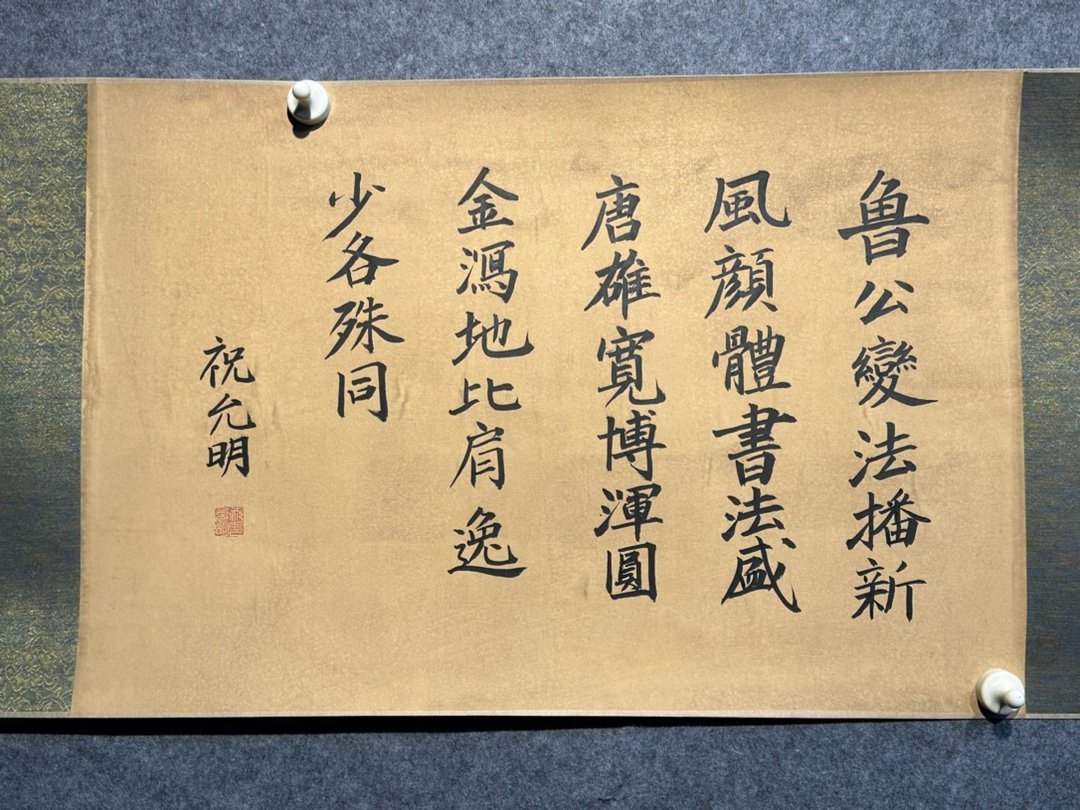 魯公變法播新
風顔體書法盛
唐雄寬博渾圓
金潙地比肩逸
少各殊同
祝允明